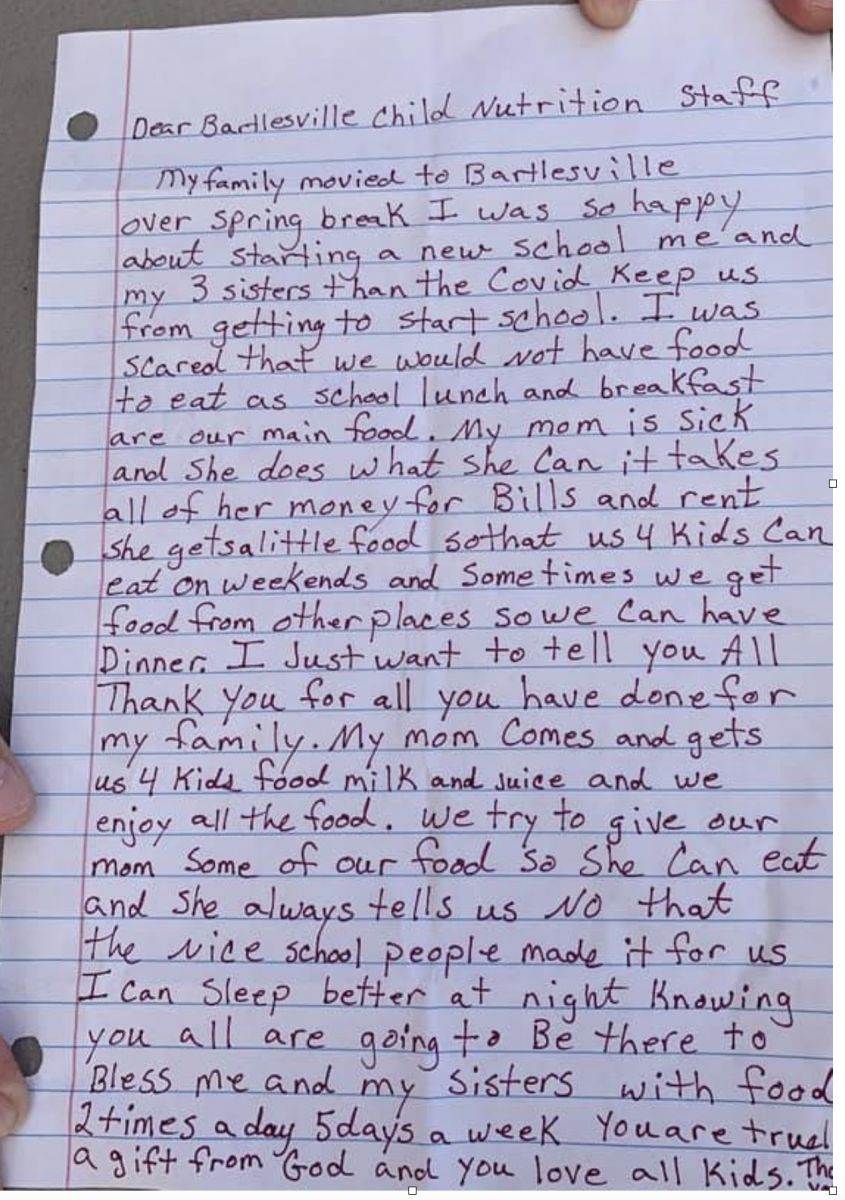 Dear Bartlesville Child Nutrition Staff
My family movied to Bartlesville
over spring break I was so happy
about starting a new school me and
my 3 sisters than the Covid Keep us
from getting to start school. I was
scared that we would not have food
to eat as school lunch and breakfast
are our main food. My mom is sick
and she does what she can it takes
all of her money for Bills and rent
she gets a little food so that us 4 Kids Can
eat on weekends and Sometimes we get
food from other places so we can have
Dinner. I Just want to tell you All
Thank you for all you have done for
my family. My mom Comes and gets
us 4 Kids food milk and Juice and we
enjoy all the food. We try to give our
mom Some of our food so She Can eat
and She always tells us NO that
the Nice school people made it for us
I can Sleep better at night Knowing
you all are going to Be there to
Bless me and my sisters with food
2 times a day 5 days a week You are truel
a gift from God and you love all Kids.